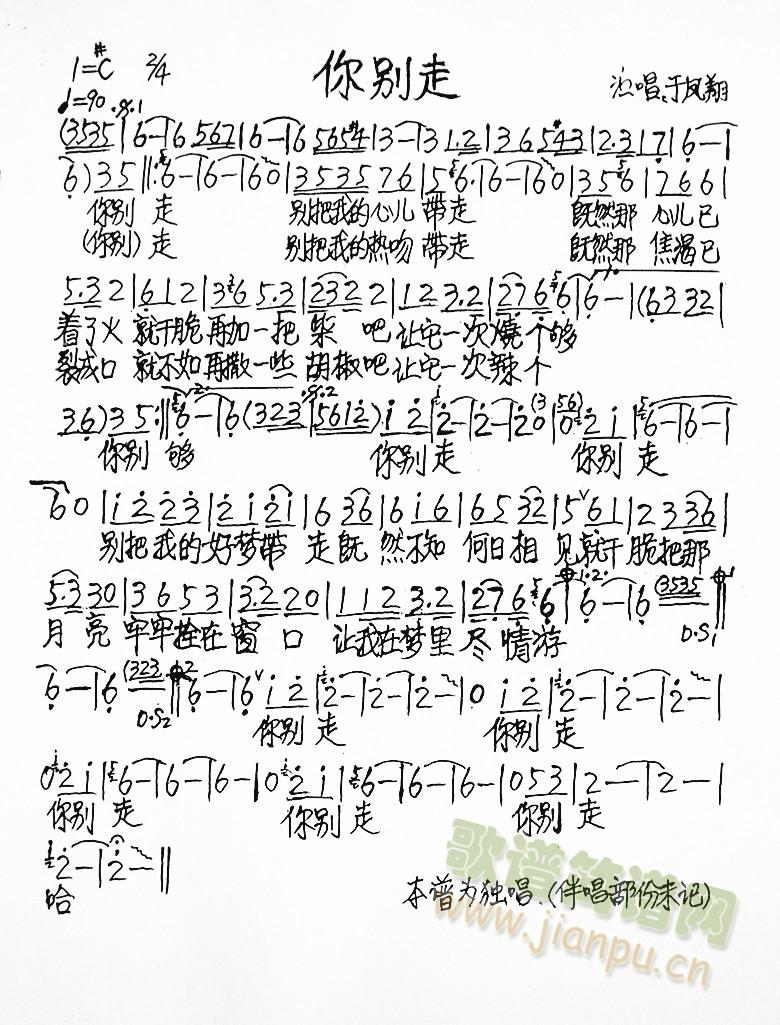 1=#C 2/4 你别走 演唱:于凤翔
♩=90 .𝄋.1
(3535|6—|6 567|6—|6 5654#|3—|3 1.2|3 6 5#43|2.3|7|6—|
6) 35||:6—|6—|6 0|3535 76|5 6.|6—|6 0|35 6|7 6 6|
你别 走 别把我的心儿 带走 既然那 心儿已
(你别) 走 别把我的热吻 带走 既然那 焦渴已
5.3 2|6 1 2|3 6 5.3|232 2|1 2 3.2|2 7 6 6|6—|(6 3 32|
着了火 就干脆再加一把 柴 吧 让它一次烧 个够
裂成口 就不如再撒一些 胡椒吧 让它一次辣 个
3 6) 35:||6—|6 (323|561 2) 1 2|2—|2—|2 0 (3|56) 0 2 1|6—|6—|
你别 够 你别 走 你别 走
6 0|1 2 2 3|2 1 2 1|6 36|6 1 6|6 5 32|5 6 1|2 3 36|
别把我的好梦带 走既 然不知 何日相 见就干脆把那
5.3 30|3 6 5 3|3.2 2 0|1 1 2 3.2|2 7 6 6|6—|6 (3535||
月 亮 牢牢拴在 窗 口 让我在梦里 尽 情游
D.S1
6—|6 (323||6—|6 1 2|2—|2—|2—|0 1 2|2—|2—|2—|
D.S2
你别 走 你别 走
0 2 1|6—|6—|6—|0 2 1|6—|6—|6—|0 5 3|2—|2—|
你别 走 你别 走 你别 走
2—|2—||
哈 本谱为独唱.(伴唱部份未记)
歌谱简谱网
www.jianpu.cn